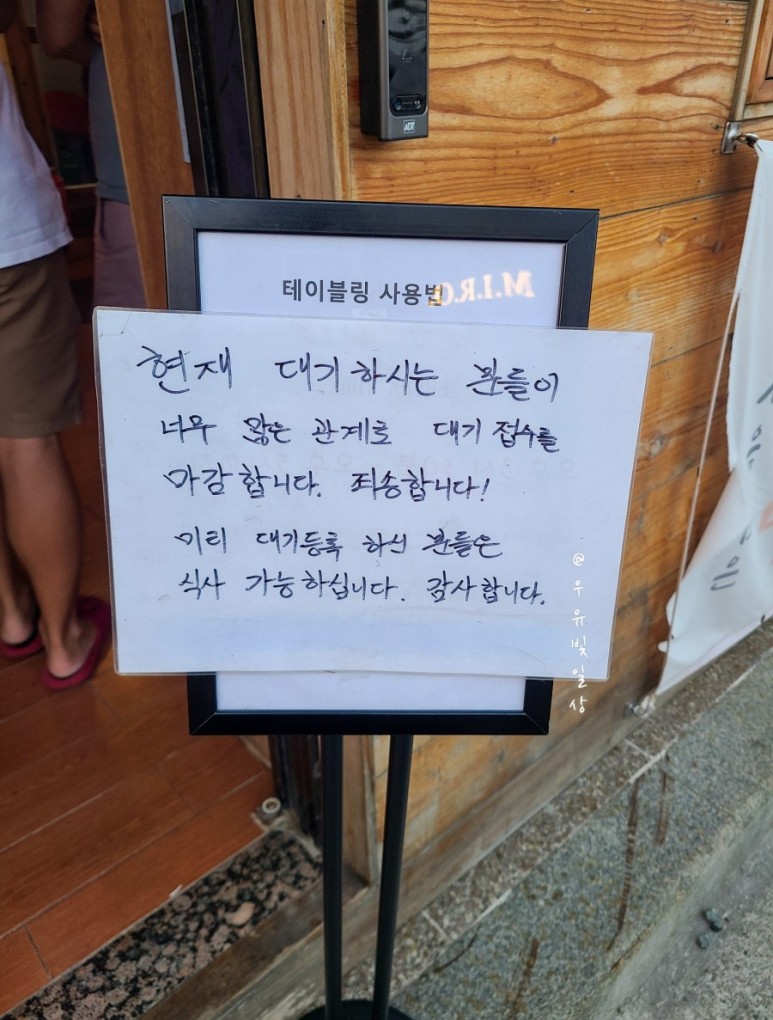 ADT
테이블링 사용법
M.I.R.O
현재 대기하시는 분들이
너무 많은 관계로 대기 접수를
마감합니다. 죄송합니다!
미리 대기등록 하신 분들은
식사 가능하십니다. 감사합니다.
@우유빛일상